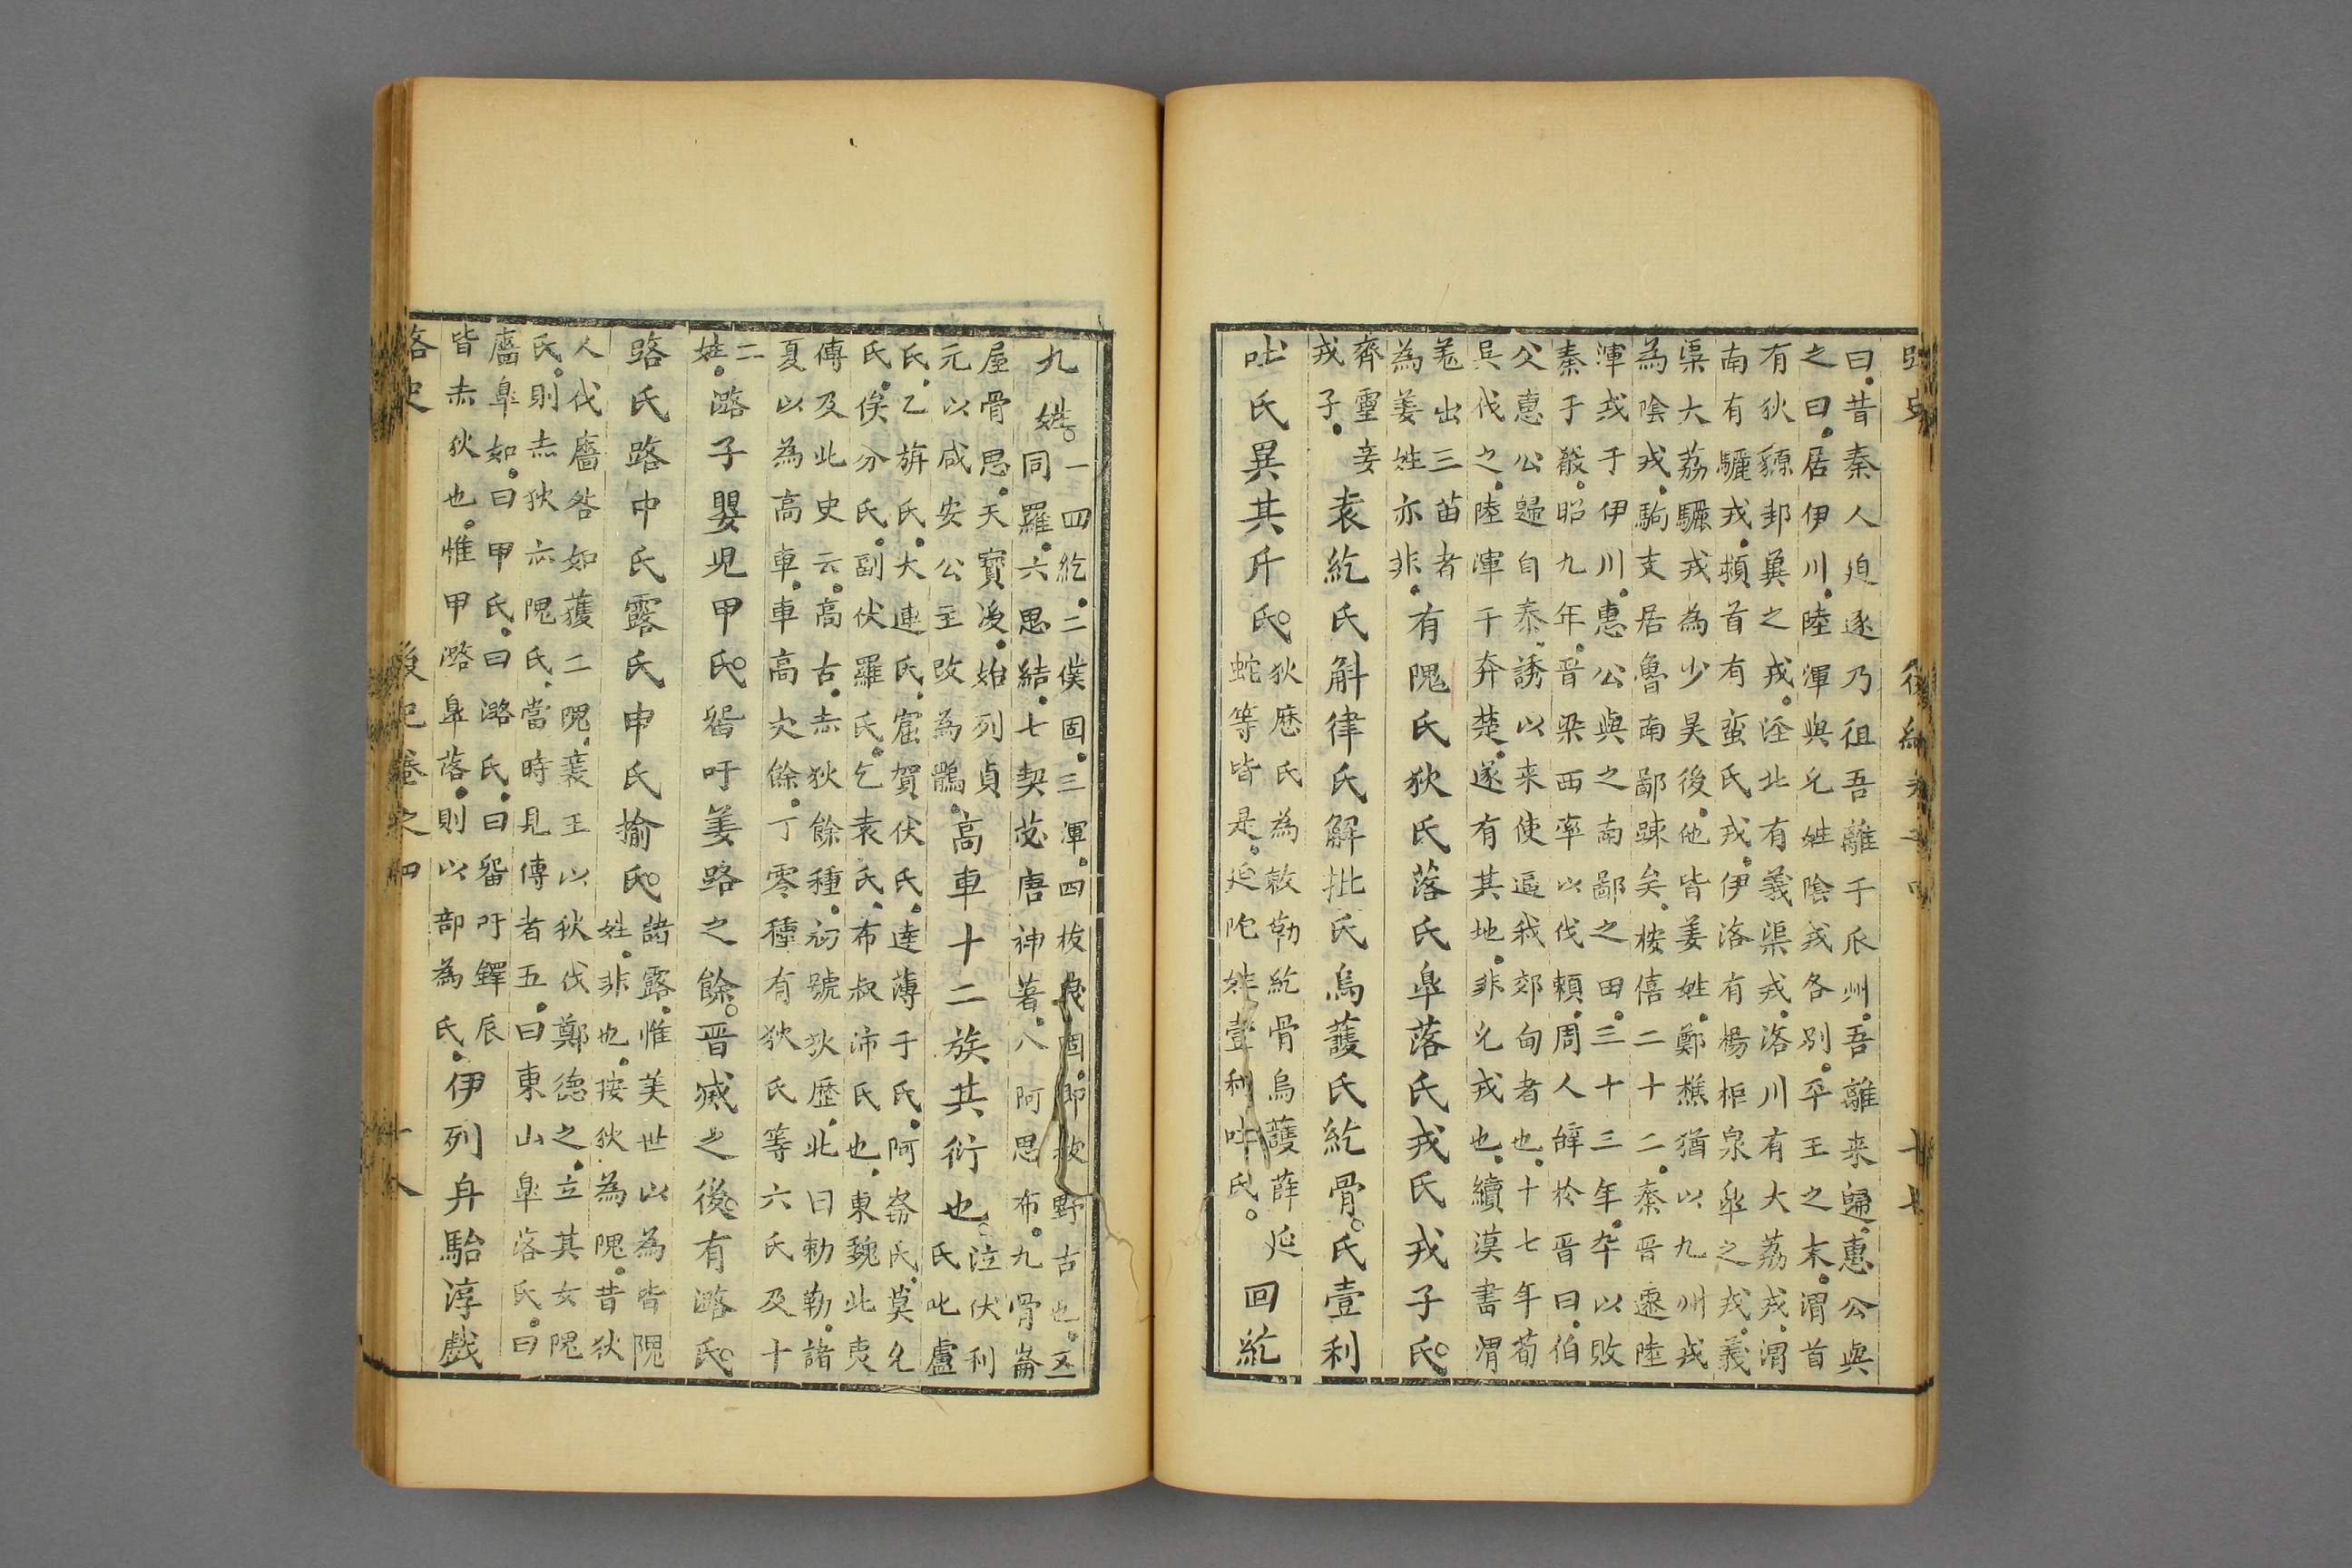 曰昔秦人迫逐乃徂吾離于瓜州吾離来歸惠公與
之曰居伊川陸渾與允姓陰戎各別平王之末渭首
有狄䝠邽冀之戎涇北有義渠戎洛川有大荔戎渭
南有驪戎潁首有蛮氏戎伊洛有楊柜泉皐之戎義
渠大荔驪戎為少昊後他皆姜姓鄭樵猶以九州戎
為陰戎駒支居魯南鄙踈矣桉僖二十二秦晉遷陸
渾戎于伊川惠公與之南鄙之田三十三年卒以敗
秦于殽昭九年晉梁西率以伐頼周人辤於晉曰伯
父惠公歸自秦誘以来使逼我郊甸者也十七年荀
吳伐之陸渾子奔楚遂有其地非允戎也續漢書渭
羗出三苗者
為姜姓亦非有隗氏狄氏落氏皐落氏戎氏戎子氏
齊靈妾
戎子袁紇氏斛律氏解批氏烏護氏紇骨氏壹利
吐氏異其斤氏狄厯氏為敕勒紇骨烏護薛延
蛇等皆是延陀姓壹利吐氏回紇
九姓一四紇二僕固三渾四枝曳固即拔野古也五
同羅六思結七契苾唐神著八阿思布九骨崙
屋骨思天寳後始列貞
元以咸安公主改為鶻高車十二族共衍也泣伏利
氏叱盧
氏乙旃氏大連氏窟賀伏氏達薄于氏阿崙氏莫允
氏俟分氏副伏羅氏乞袁氏布叔沛氏也東魏北夷
傳及北史云高古赤狄餘種初號狄歷北曰勅勒諸
夏以為高車車高大餘丁零種有狄氏等六氏及十
二
姓潞子嬰児甲氏留吁姜路之餘晋滅之後有潞氏
路氏路中氏露氏申氏揄氏諸露惟美世以為皆隗
姓非也按狄為隗昔狄
人伐廧咎如獲二隗襄王以狄伐鄭德之立其女隗
氏則赤狄亦隗氏當時見傳者五曰東山皐落氏曰
廧皐如曰甲氏曰潞氏曰留吁鐸辰
皆赤狄也惟甲潞皐落則以部為氏伊列舟駘淳戲
路史
後紀卷之四
十八